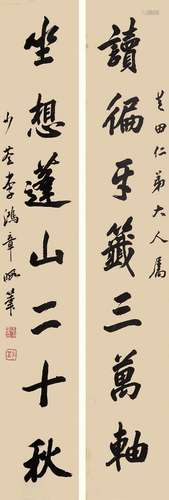 芝田仁弟大人屬
讀徧牙籤三萬軸
坐想蓬山二十秋
少荃李鴻章